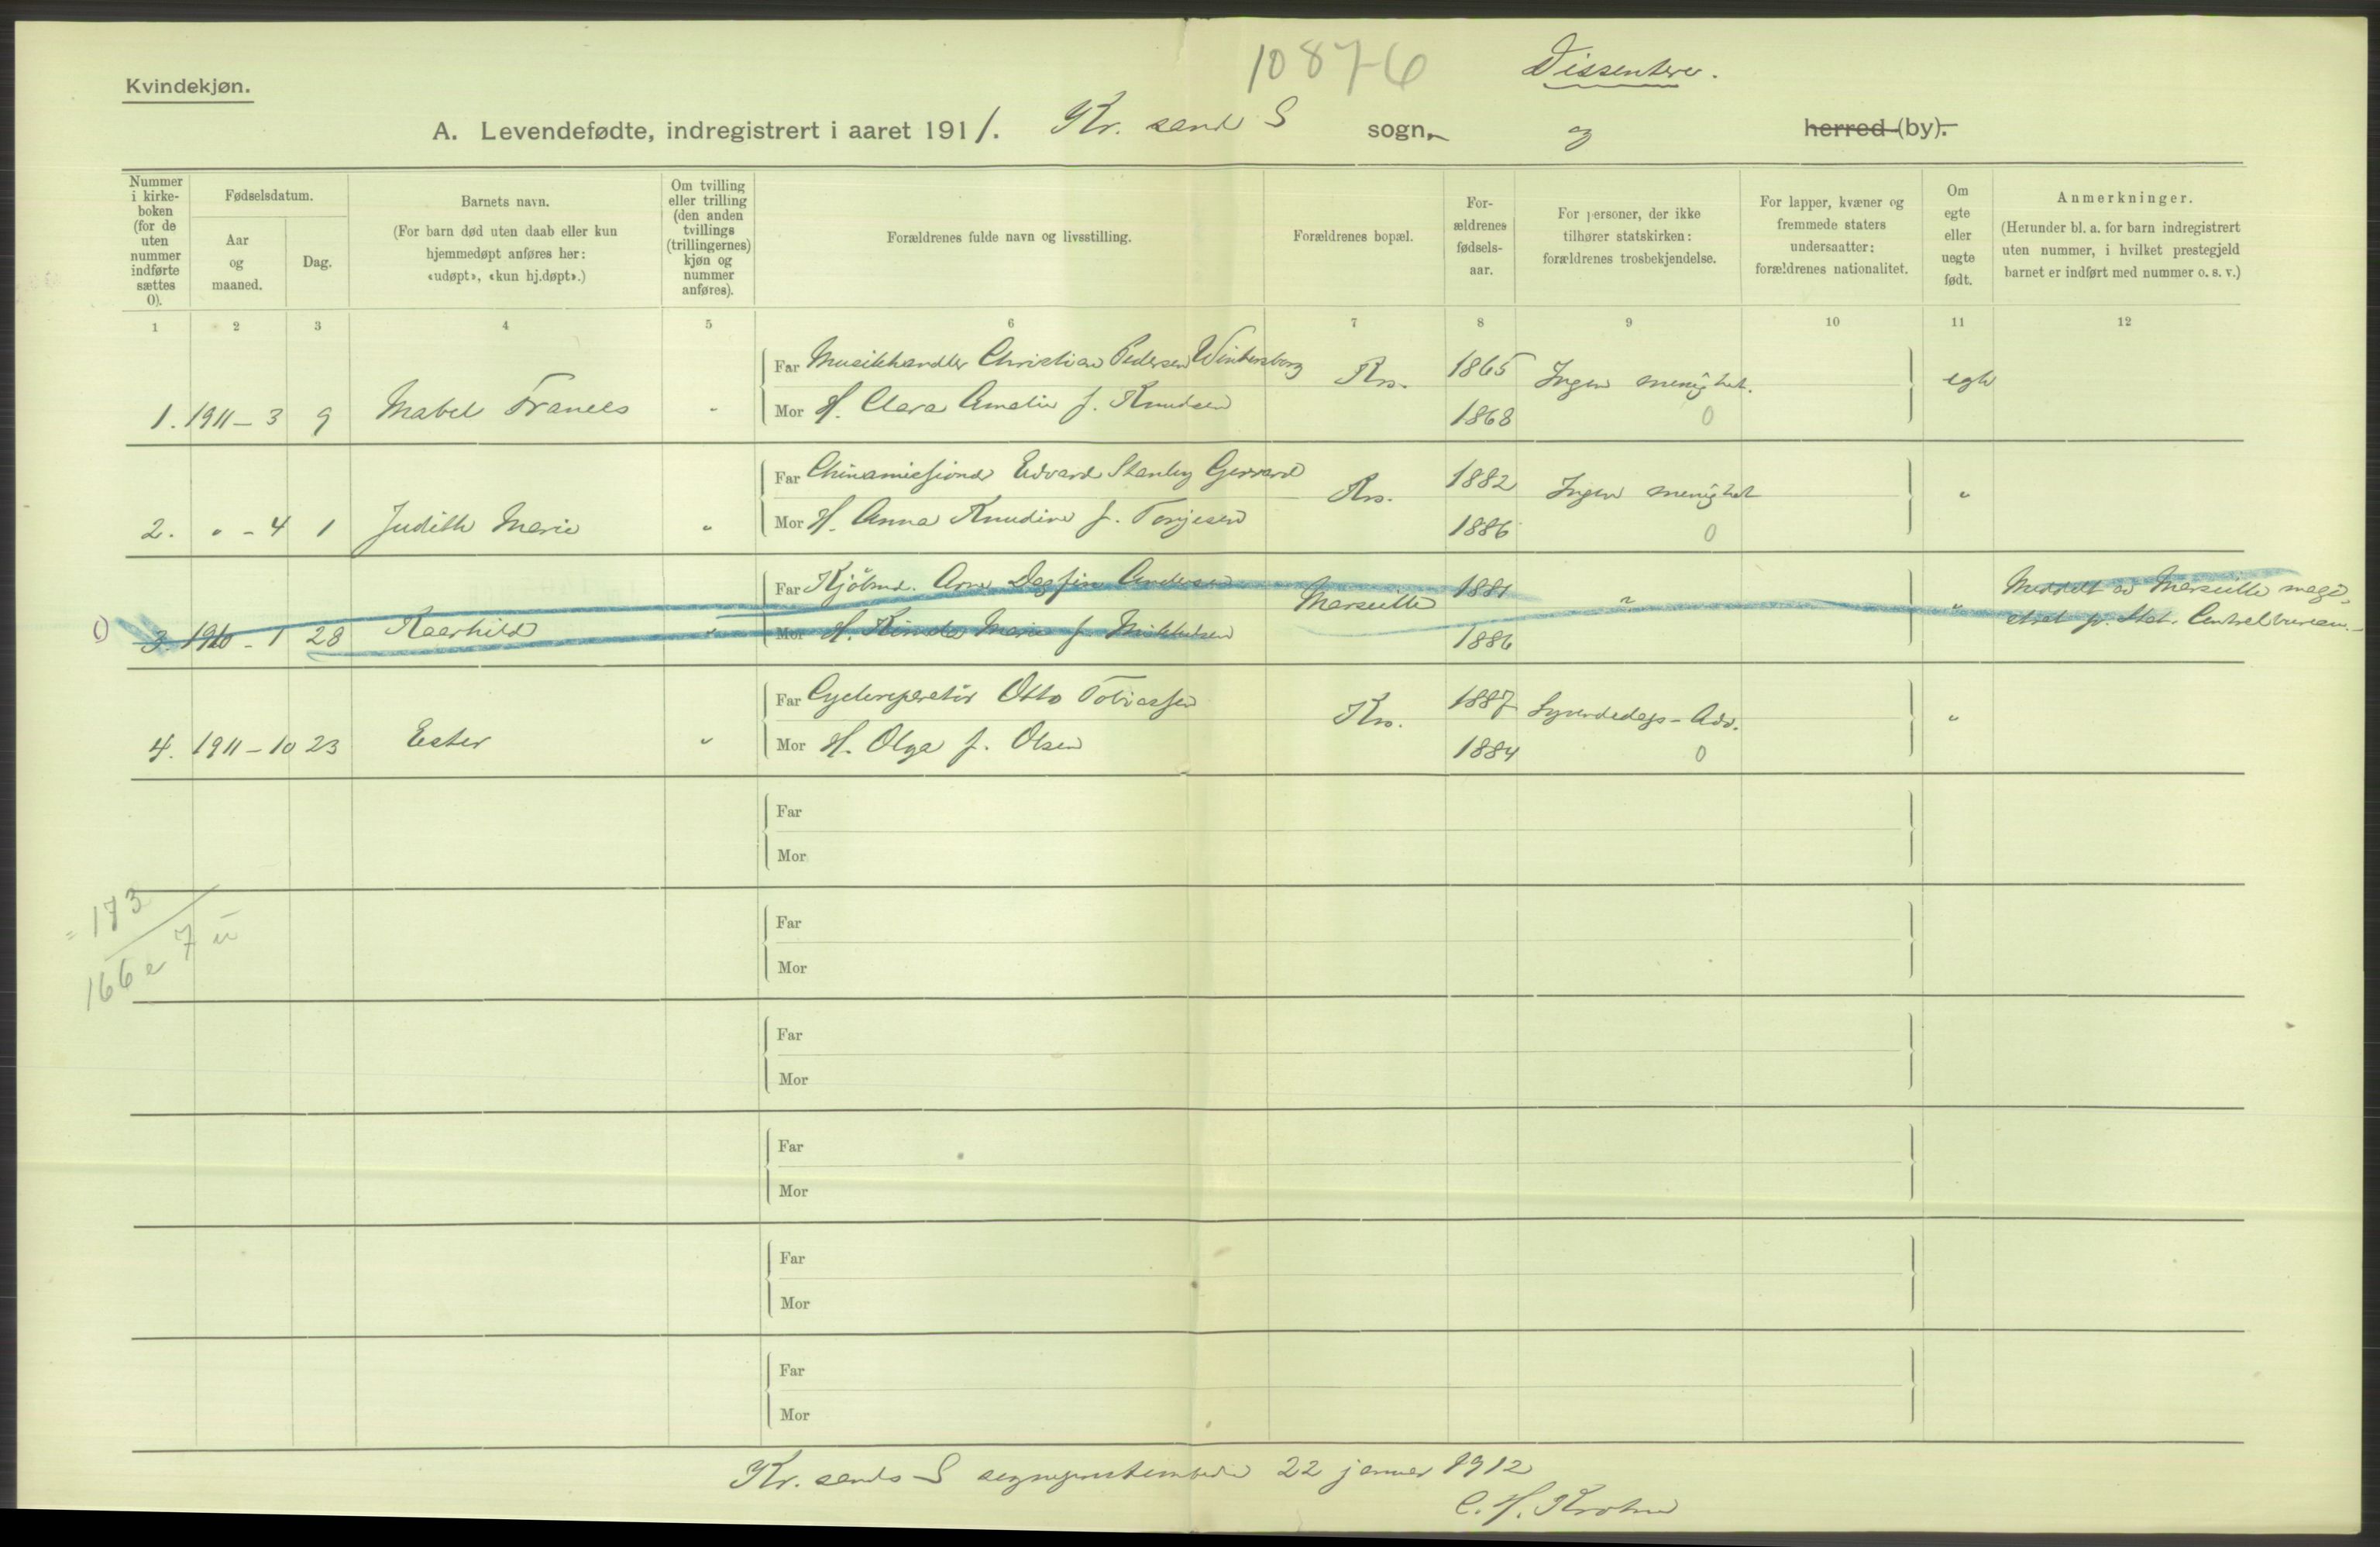 10876
Dissentere.
Kvindekjøn.
A. Levendefødte, indregistrert i aaret 1911. Kr. sand S sogn, og herred (by).
Nummer i kirke-boken (for de uten nummer indførte sættes 0).
Fødselsdatum.
Aar og maaned.
Dag.
Barnets navn.
(For barn død uten daab eller kun hjemmedøpt anføres her: «udøpt», «kun hj.døpt».)
Om tvilling eller trilling (den anden tvillings (trillingernes) kjøn og nummer anføres).
Forældrenes fulde navn og livsstilling.
Forældrenes bopæl.
For-ældrenes fødsels-aar.
For personer, der ikke tilhører statskirken: forældrenes trosbekjendelse.
For lapper, kvæner og fremmede staters undersaatter: forældrenes nationalitet.
Om egte eller uegte født.
Anmerkninger.
(Herunder bl. a. for barn indregistrert uten nummer, i hvilket prestegjeld barnet er indført med nummer o. s. v.)
1 2 3 4 5 6 7 8 9 10 11 12
Far Musikhandler Christian Pedersen Wintersborg Krs. 1865 Ingen menighet. egte
1. 1911 - 3 9 Mabel Frances " Mor H. Clara Amalie f. Knudsen 1868 0
Far Chinamissionær Edvard Stanley Gerrard Krs. 1882 Ingen menighet "
2. " - 4 1 Judith Marie " Mor H. Anna Knudine f. Torjesen 1886 0
Far Kjøbmd. Arne Dagfin Andersen Marseille 1881 " " Meddelt av Marseille magi-
3. 1910 - 1 28 " Mor H. Marie f. Mikkelsen 1886 strat p. Stat. Centralbureau.
Far Cyclereparatør Otto Tobiassen Krs. 1887 Syvendedags-Adv. "
4. 1911 - 10 23 Ester " Mor H. Olga f. Olsen 1884 0
Far
Mor
= 173
166 e 7 u
Far
Mor
Far
Mor
Far
Mor
Far
Mor
Far
Mor
Kr. sands S sogneprestembede 22 januar 1912
C. H. Krohn